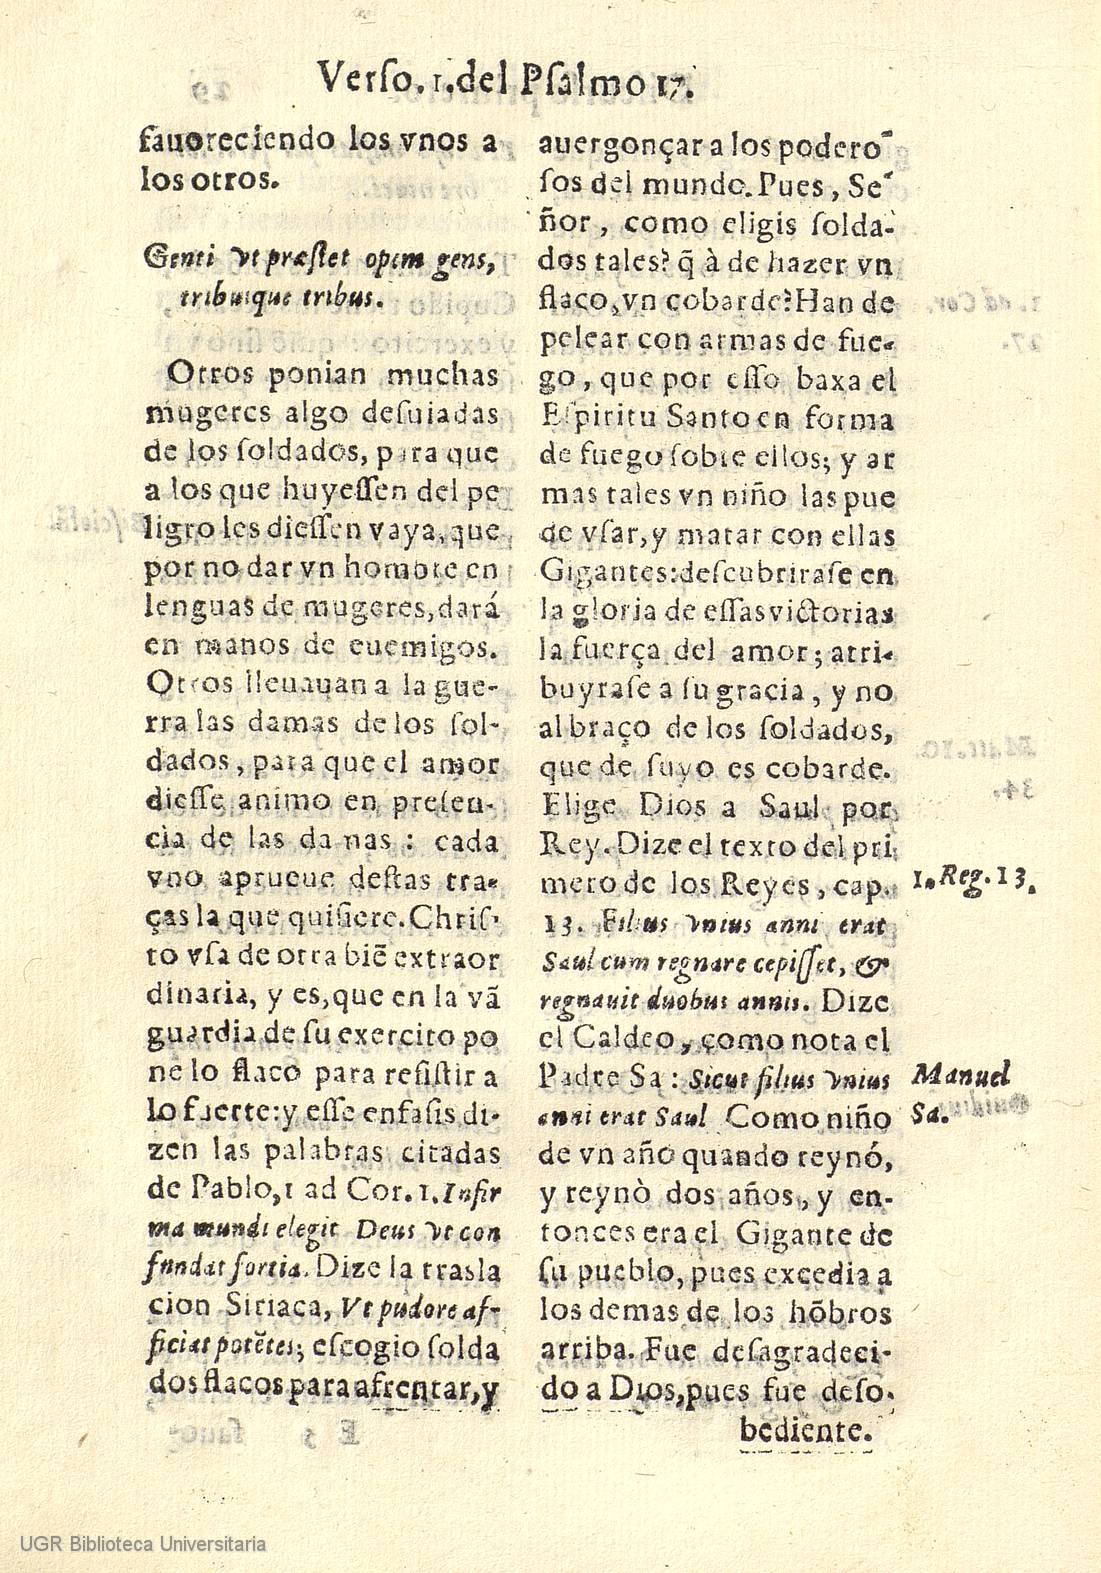 Verſo. 1. del Pſalmo 17.
fauoreciendo los vnos a
los otros.
Genti vt præſtet opem gens,
tribuique tribus.
Otros ponian muchas
mugeres algo deſuiadas
de los ſoldados, para que
a los que huyeſſen del pe
ligro les dieſſen vaya, que
por no dar vn hombre en
lenguas de mugeres, dará
en manos de euemigos.
Otros lleuauan a la gue-
rra las damas de los ſol-
dados, para que el amor
dieſſe animo en preſen-
cia de las damas: cada
vno aprueue deſtas tra-
ças la que quiſiere. Chriſ-
to vſa de otra biẽ extraor
dinaria, y es, que en la vã
guardia de ſu exercito po
ne lo flaco para reſiſtir a
lo fuerte: y eſſe enfaſis di-
zen las palabras citadas
de Pablo, 1 ad Cor. 1. Infir
ma mundi elegit Deus vt con
fundat fortia. Dize la traſla
cion Siriaca, Vt pudore af-
ficiat potẽtes; eſcogio ſolda
dos flacos para afrentar, y
auergonçar a los podero-
ſos del mundo. Pues, Se-
ñor, como eligis ſolda-
dos tales? q̃ à de hazer vn
flaco, vn cobarde? Han de
pelear con armas de fue-
go, que por eſſo baxa el
Eſpiritu Santo en forma
de fuego ſobre ellos; y ar
mas tales vn niño las pue
de vſar, y matar con ellas
Gigantes: deſcubriraſe en
la gloria de eſſas victorias
la fuerça del amor; atri-
buyraſe a ſu gracia, y no
al braço de los ſoldados,
que de ſuyo es cobarde.
Elige Dios a Saul por
Rey. Dize el texto del pri
mero de los Reyes, cap.
1. Reg. 13.
13. Filius vnius anni erat
Saul cum regnare cepiſſet, &
regnauit duobus annis. Dize
el Caldeo, como nota el
Padre Sa: Sicut filius vnius
Manuel
anni erat Saul Como niño
Sa.
de vn año quando reynó,
y reynò dos años, y en-
tonces era el Gigante de
ſu pueblo, pues excedia a
los demas de los hõbros
arriba. Fue deſagradeci-
do a Dios, pues fue deſo-
bediente.
UGR Biblioteca Universitaria